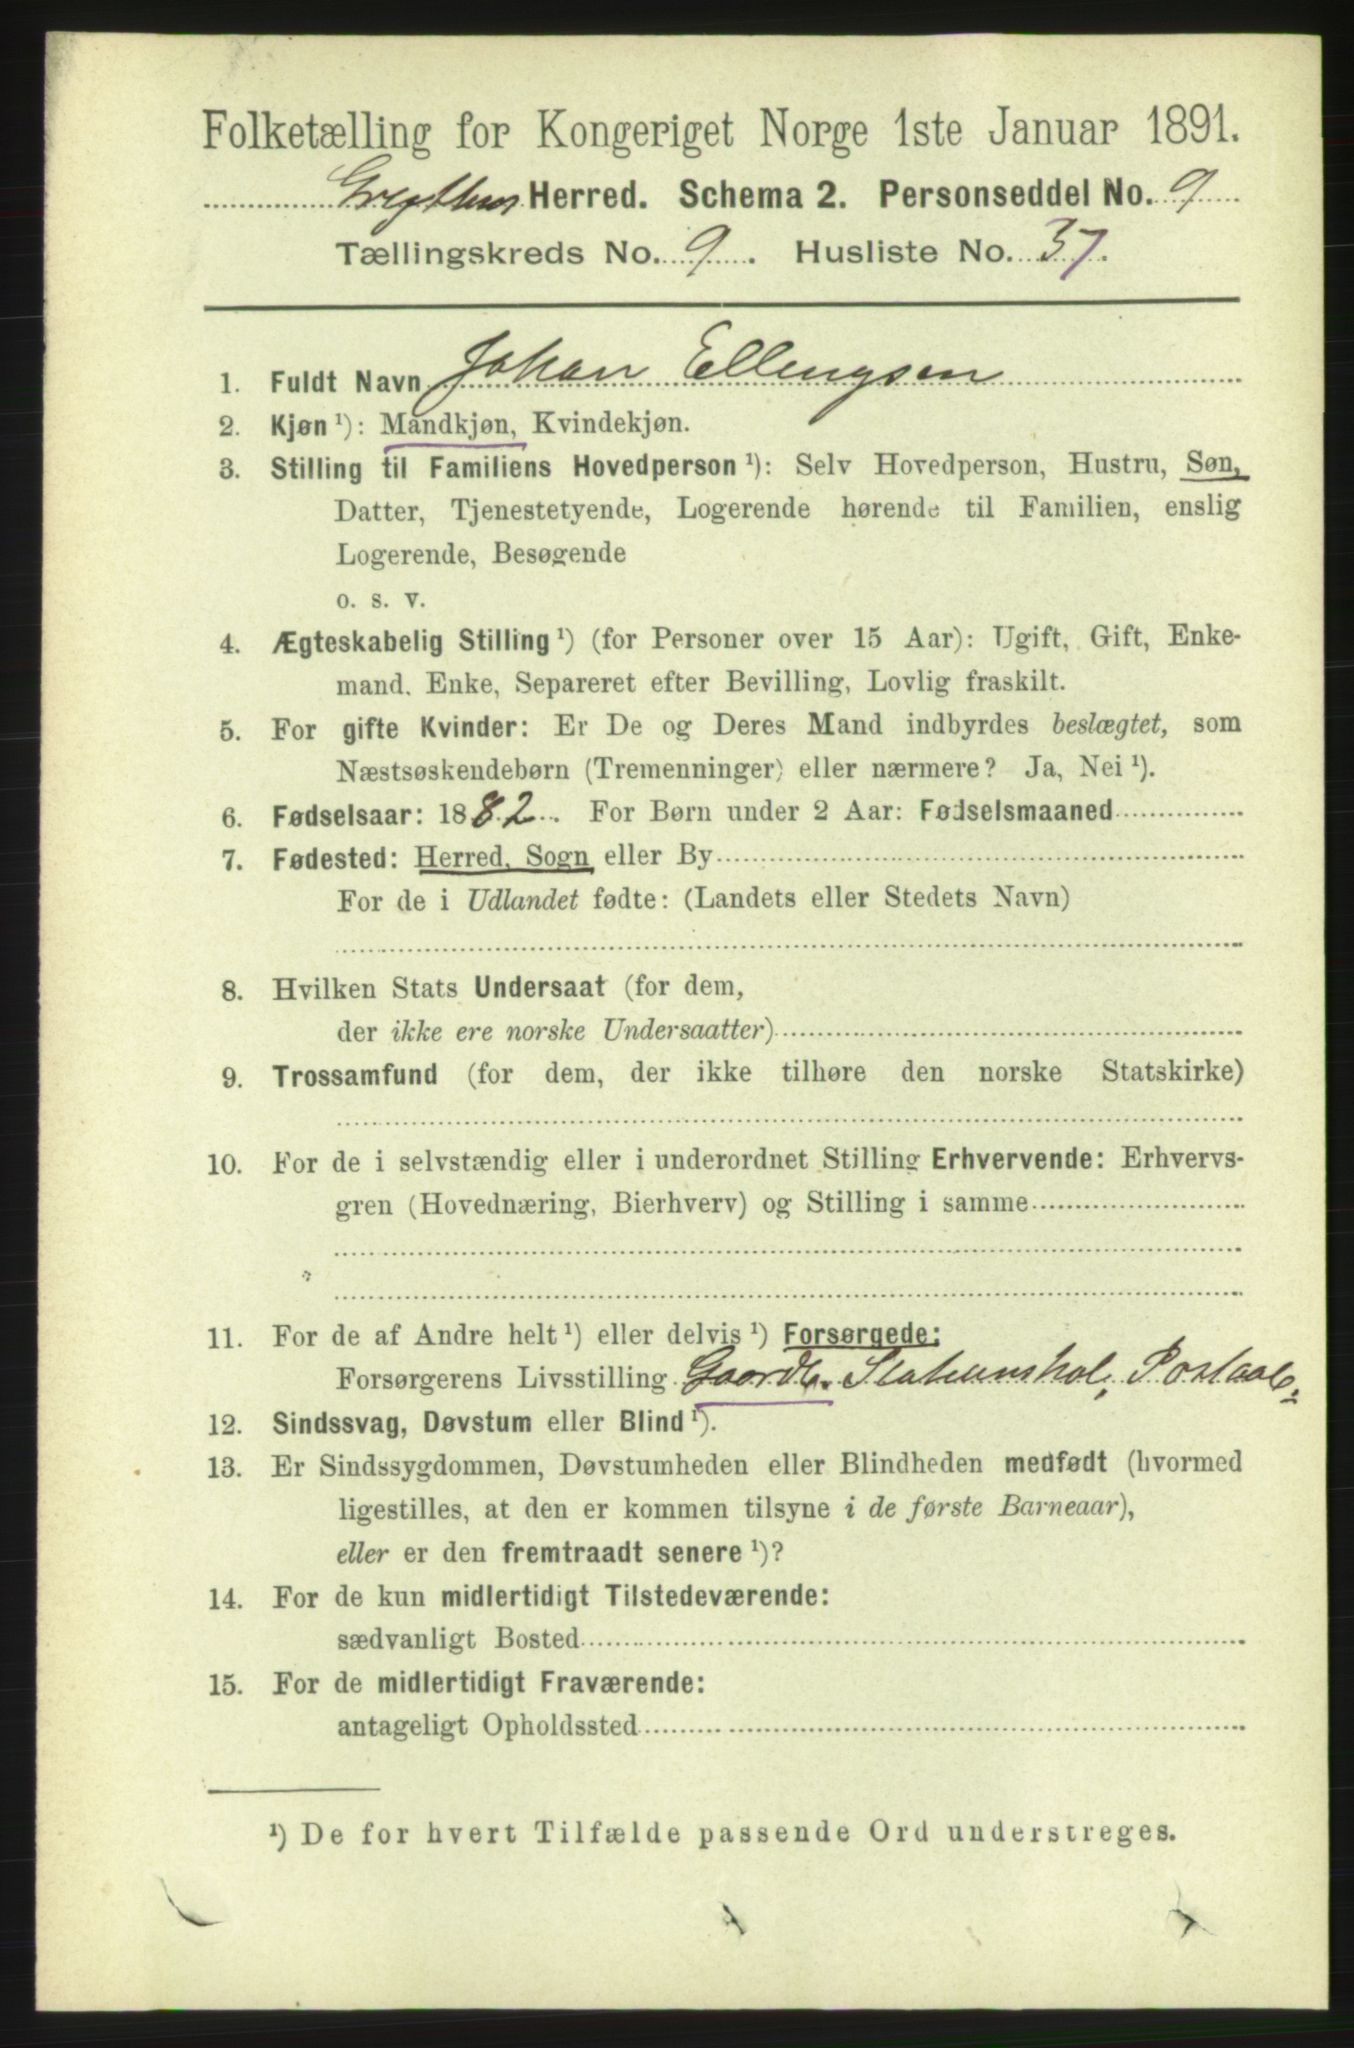 Folketælling for Kongeriget Norge 1ste Januar 1891.
Grythus Herred. Schema 2. Personseddel No. 9
Tællingskreds No. 9. Husliste No. 37.
1. Fuldt Navn Johan Ellingsen
2. Kjøn ¹): Mandkjøn, Kvindekjøn.
3. Stilling til Familiens Hovedperson ¹): Selv Hovedperson, Hustru, Søn,
Datter, Tjenestetyende, Logerende hørende til Familien, enslig
Logerende, Besøgende
o. s. v.
4. Ægteskabelig Stilling ¹) (for Personer over 15 Aar): Ugift, Gift, Enke-
mand, Enke, Separeret efter Bevilling, Lovlig fraskilt.
5. For gifte Kvinder: Er De og Deres Mand indbyrdes beslægtet, som
Næstsøskendebørn (Tremenninger) eller nærmere? Ja, Nei ¹).
6. Fødselsaar: 1882. For Børn under 2 Aar: Fødselsmaaned
7. Fødested: Herred, Sogn eller By
For de i Udlandet fødte: (Landets eller Stedets Navn)
8. Hvilken Stats Undersaat (for dem,
der ikke ere norske Undersaatter)
9. Trossamfund (for dem, der ikke tilhøre den norske Statskirke)
10. For de i selvstændig eller i underordnet Stilling Erhvervende: Erhvervs-
gren (Hovednæring, Bierhverv) og Stilling i samme
11. For de af Andre helt ¹) eller delvis ¹) Forsørgede:
Forsørgerens Livsstilling Gaardb. Stationshol, Postaab.
12. Sindssvag, Døvstum eller Blind ¹).
13. Er Sindssygdommen, Døvstumheden eller Blindheden medfødt (hvormed
ligestilles, at den er kommen tilsyne i de første Barneaar),
eller er den fremtraadt senere ¹)?
14. For de kun midlertidigt Tilstedeværende:
sædvanligt Bosted
15. For de midlertidigt Fraværende:
antageligt Opholdssted
¹) De for hvert Tilfælde passende Ord understreges.